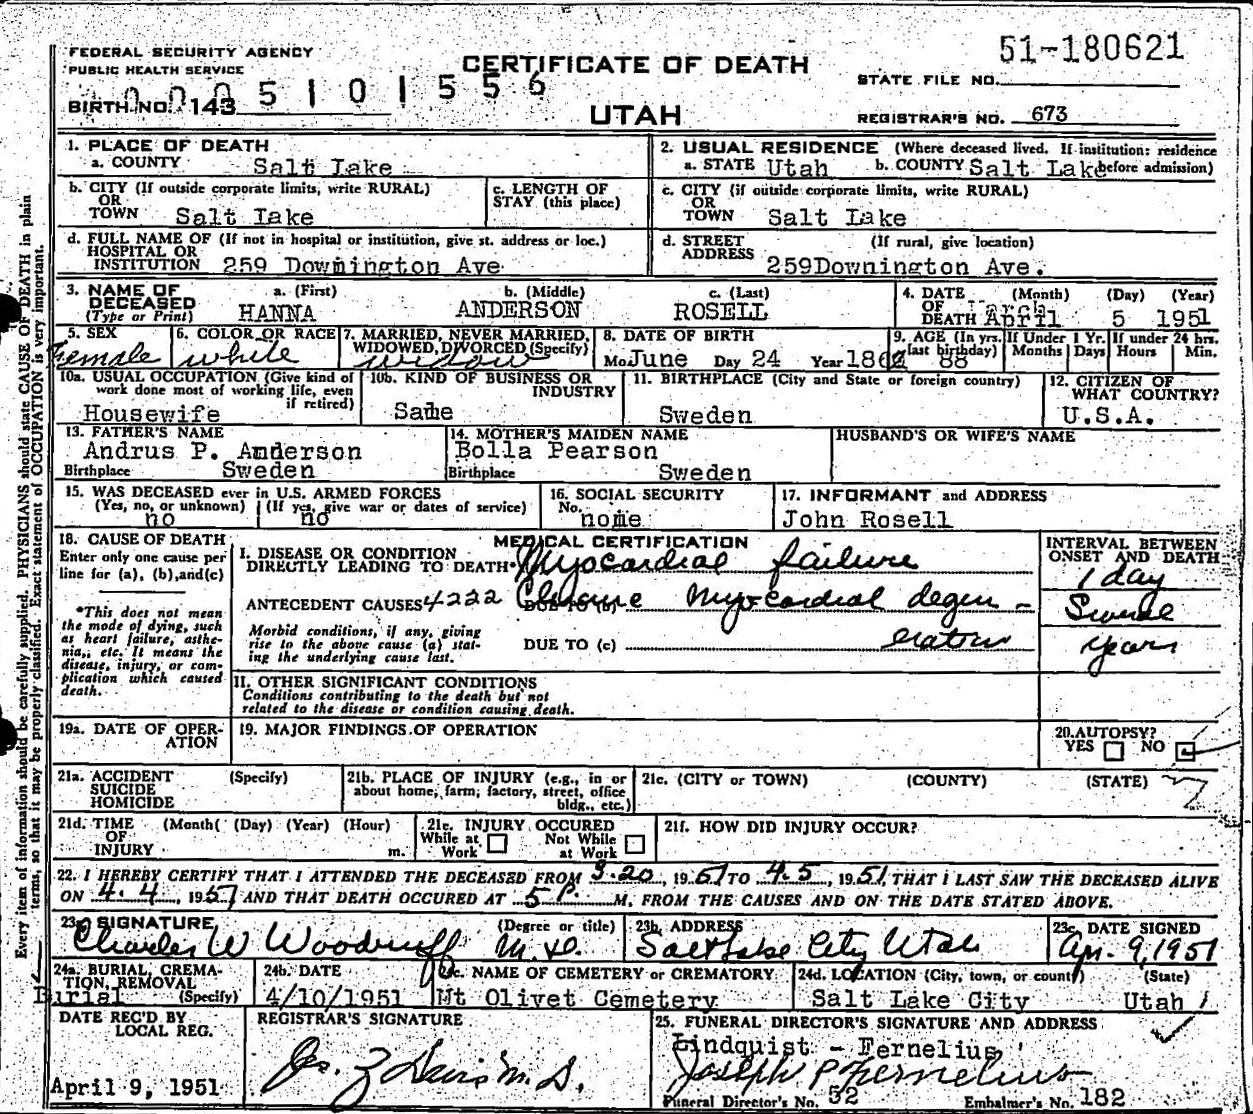 FEDERAL SECURITY AGENCY
PUBLIC HEALTH SERVICE
BIRTH NO. 143
0005101556
CERTIFICATE OF DEATH
UTAH
51-180621
STATE FILE NO.
REGISTRAR'S NO. 673
1. PLACE OF DEATH
a. COUNTY Salt Lake
2. USUAL RESIDENCE (Where deceased lived. If institution: residence before admission)
a. STATE Utah b. COUNTY Salt Lake
b. CITY (If outside corporate limits, write RURAL)
OR
TOWN Salt Lake
c. LENGTH OF
STAY (this place)
c. CITY (if outside corporate limits, write RURAL)
OR
TOWN Salt Lake
d. FULL NAME OF (If not in hospital or institution, give st. address or loc.)
HOSPITAL OR
INSTITUTION 259 Downington Ave
d. STREET (If rural, give location)
ADDRESS 259Downington Ave.
3. NAME OF DECEASED
(Type or Print)
a. (First) b. (Middle) c. (Last)
HANNA ANDERSON ROSELL
4. DATE OF DEATH (Month) (Day) (Year)
April 5 1951
5. SEX
Female
6. COLOR OR RACE
white
7. MARRIED, NEVER MARRIED,
WIDOWED, DIVORCED (Specify)
widow
8. DATE OF BIRTH
Mo. June Day 24 Year 186
9. AGE (In yrs. last birthday) 88
If Under 1 Yr. Months Days
If under 24 hrs. Hours Min.
10a. USUAL OCCUPATION (Give kind of
work done most of working life, even
if retired)
Housewife
10b. KIND OF BUSINESS OR
INDUSTRY
Same
11. BIRTHPLACE (City and State or foreign country)
Sweden
12. CITIZEN OF
WHAT COUNTRY?
U.S.A.
13. FATHER'S NAME
Andrus P. Anderson
Birthplace Sweden
14. MOTHER'S MAIDEN NAME
Bolla Pearson
Birthplace Sweden
HUSBAND'S OR WIFE'S NAME
15. WAS DECEASED ever in U.S. ARMED FORCES
(Yes, no, or unknown) (If yes, give war or dates of service)
no no
16. SOCIAL SECURITY
No. none
17. INFORMANT and ADDRESS
John Rosell
18. CAUSE OF DEATH
Enter only one cause per
line for (a), (b),and(c)
*This does not mean
the mode of dying, such
as heart failure, asthe-
nia,, etc. It means the
disease, injury, or com-
plication which caused
death.
MEDICAL CERTIFICATION
I. DISEASE OR CONDITION
DIRECTLY LEADING TO DEATH* Myocardial failure
ANTECEDENT CAUSES 4222 DUE TO (b) Chronic Myocardial degen-
Morbid conditions, if any, giving
rise to the above cause (a) stat-
ing the underlying cause last.
DUE TO (c) eration
INTERVAL BETWEEN
ONSET AND DEATH
1 day
Several
years
II. OTHER SIGNIFICANT CONDITIONS
Conditions contributing to the death but not
related to the disease or condition causing death.
19a. DATE OF OPER-
ATION
19. MAJOR FINDINGS OF OPERATION
20. AUTOPSY?
YES NO
21a. ACCIDENT (Specify)
SUICIDE
HOMICIDE
21b. PLACE OF INJURY (e.g., in or
about home, farm, factory, street, office
bldg., etc.)
21c. (CITY or TOWN) (COUNTY) (STATE)
21d. TIME (Month) (Day) (Year) (Hour)
OF
INJURY m.
21e. INJURY OCCURED
While at Work Not While at Work
21f. HOW DID INJURY OCCUR?
22. I HEREBY CERTIFY THAT I ATTENDED THE DECEASED FROM 3-20, 1951 TO 4-5, 1951, THAT I LAST SAW THE DECEASED ALIVE
ON 4-4, 1951 AND THAT DEATH OCCURED AT 5 P. M, FROM THE CAUSES AND ON THE DATE STATED ABOVE.
23. SIGNATURE (Degree or title)
Charles W Woodruff M.D.
23b. ADDRESS
Salt Lake City Utah
23c. DATE SIGNED
Apr. 9, 1951
24a. BURIAL, CREMA-
TION, REMOVAL
(Specify)
Burial
24b. DATE
4/10/1951
24c. NAME OF CEMETERY or CREMATORY
Mt Olivet Cemetery
24d. LOCATION (City, town, or county) (State)
Salt Lake City Utah
DATE REC'D BY
LOCAL REG.
April 9, 1951
REGISTRAR'S SIGNATURE
25. FUNERAL DIRECTOR'S SIGNATURE AND ADDRESS
Lindquist - Fernelius
Joseph P Fernelius
Funeral Director's No. 52 Embalmer's No. 182
Every item of information should be carefully supplied. PHYSICIANS should state CAUSE OF DEATH in plain
terms, so that it may be properly classified. Exact statement of OCCUPATION is very important.